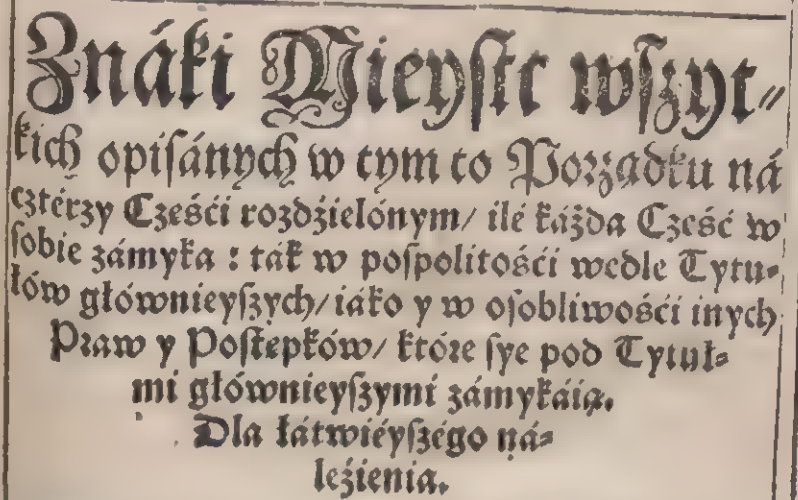 Znáki Mieyſtc wſzyt⸗
kich opiſánych w tym to Porządku ná
cztérzy Częśći rozdźielónym/ ilé káżda Część w
ſobie zámyka : ták w poſpolitośći wedle Tytu⸗
łów główniejſzych/ iáko y w oſobliwośći inych
Praw y Poſtępków/ które ſye pod Tytuł⸗
mi główniejſzymi zámykáią.
Dla łátwiéyſzégo ná⸗
leźienia.